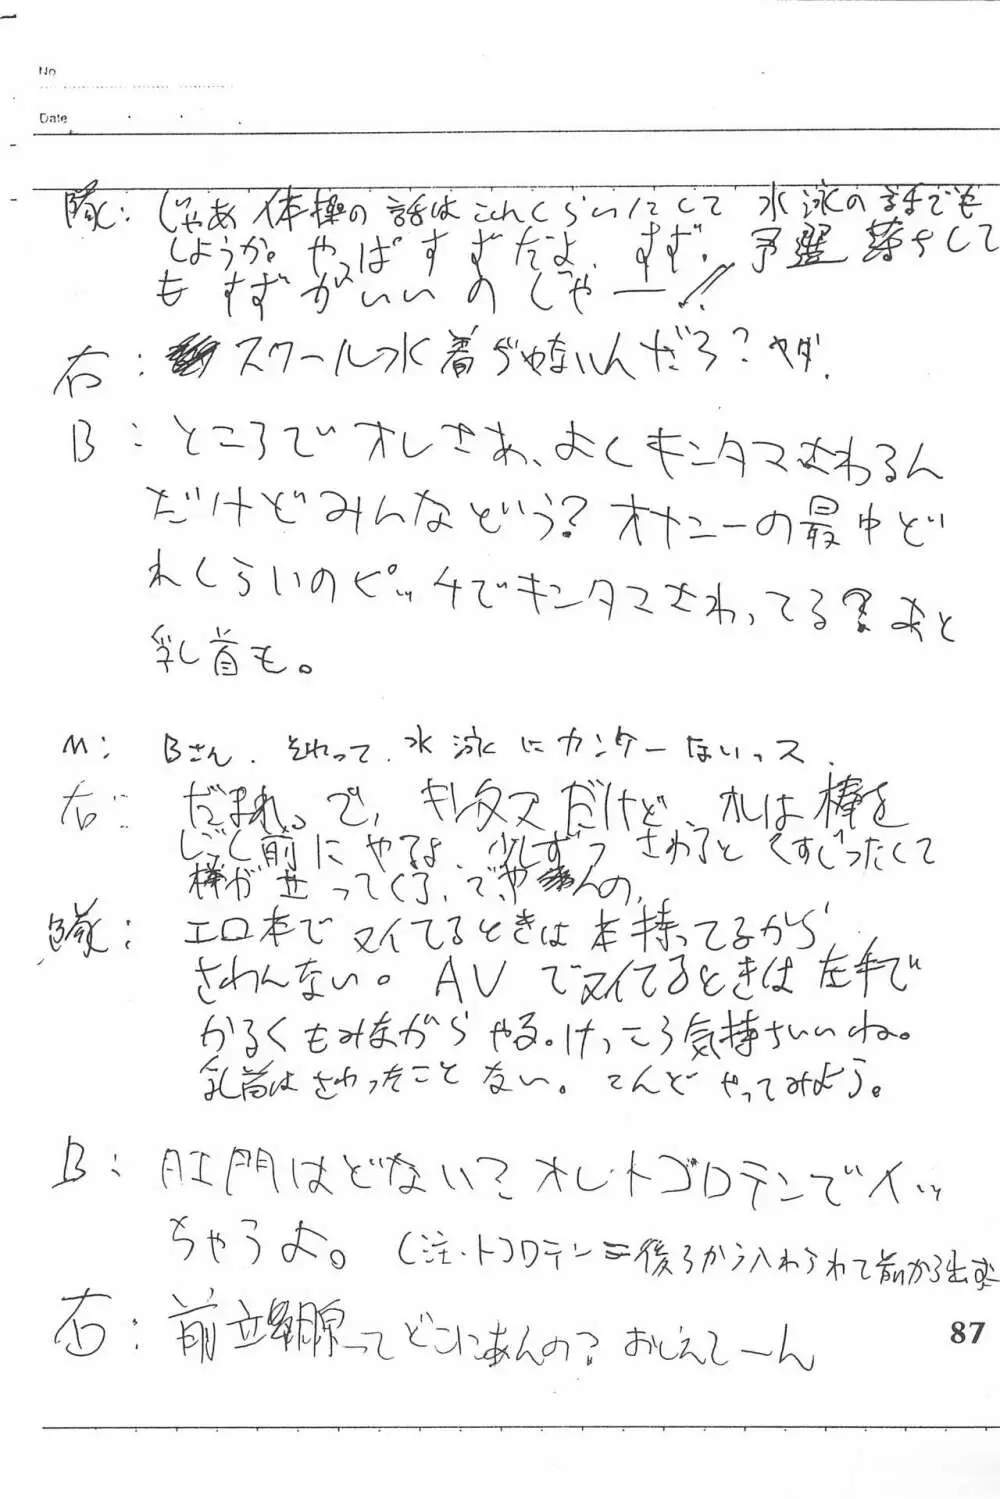 No
Date
隊：じゃあ体操の話はこれくらいにして水泳の話でも
しようか。やっぱすずだよ、すず。予選落ちして
もすずがいいのじゃー!!
右：スクール水着ぢゃないんだろ？ヤダ.
B：ところでオレさあ、よくキンタマさわるん
だけどみんなどう？オナニーの最中ど
れくらいのピッチでキンタマさわってる？あと
乳首も。
M：Bさん、それって、水泳にカンケーないっス.
右：だまれ。で、キンタマだけど、オレは棒を
しごく前にやるよ、少しずつさわるとくすぐったくて
棒がせってくる、でやんの.
隊：エロ本でヌイてるときは本持ってるから
さわんない。AVでヌイてるときは左手で
かるくもみながらやる。けっこう気持ちいいね。
乳首はさわったことない。こんどやってみよう。
B：肛門はどない？オレトコロテンでイッ
ちゃうよ。(注・トコロテン＝後ろから入れられて前から出す
右：前立腺ってどこにあんの？おしえてーん
87